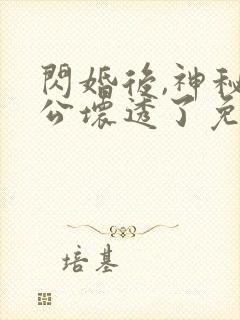 閃婚後,神秘
公壞透了免
培基